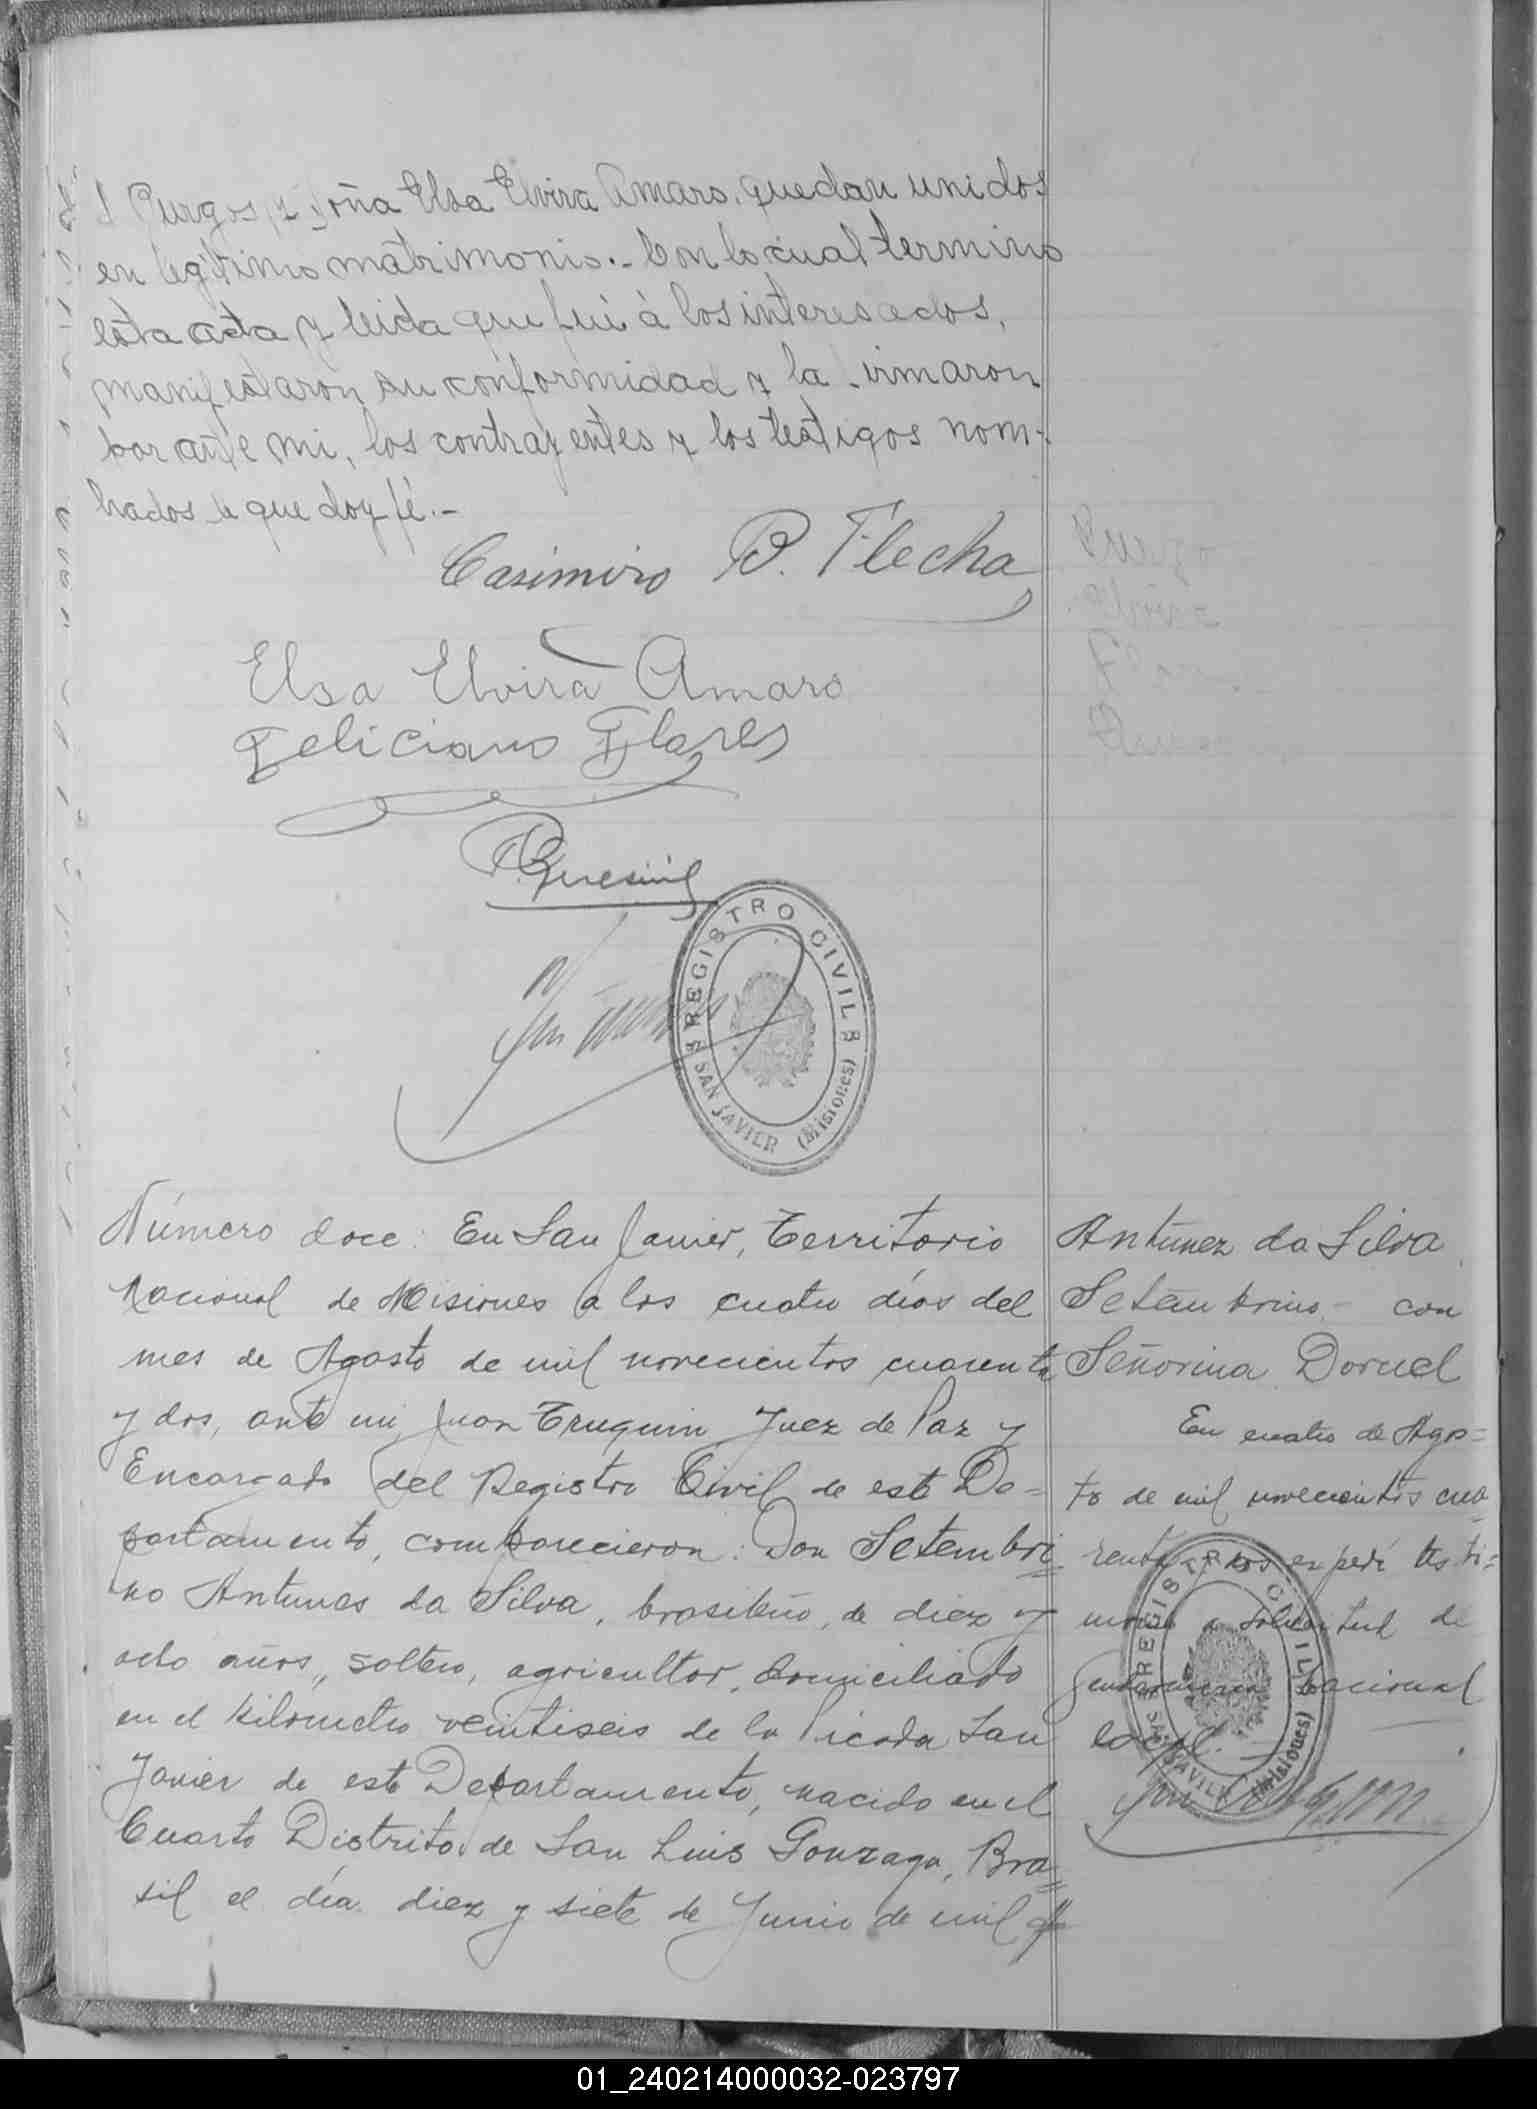 Burgos, y doña Elsa Elvira Amaro, quedan unidos
en legitimo matrimonio.- Con lo cual termino
esta acta y leida que fué à los interesados,
manifestaron su conformidad y la firmaron
por ante mi, los contrayentes y los testigos nom-
brados de que doy fé.-
Casimiro B. Flecha
Elsa Elvira Amaro
Feliciano Flores
REGISTRO CIVIL
SAN JAVIER (Misiones)
Número doce: En San Javier, Territorio
Nacional de Misiones a los cuatro días del
mes de Agosto de mil novecientos cuarenta
y dos, ante mi, Juan Truquin Juez de Paz y
Encargado del Registro Civil de este De=
partamento, comparecieron: Don Setembri=
no Antunes da Silva, brasileño, de diez y
ocho años, soltero, agricultor, domiciliado
en el kilometro veintiseis de la Picada San
Javier de este Departamento, nacido en el
Cuarto Distrito de San Luis Gonzaga, Bra=
sil el día diez y siete de Junio de mil
Antúnez da Silva
Setembrino - con
Señorina Dornel
En cuatro de Agos=
to de mil novecientos cua
renta y dos expedí testi=
monio a solicitud de
Gendarmeria Nacional
local.
REGISTRO CIVIL
SAN JAVIER (Misiones)
01_240214000032-023797